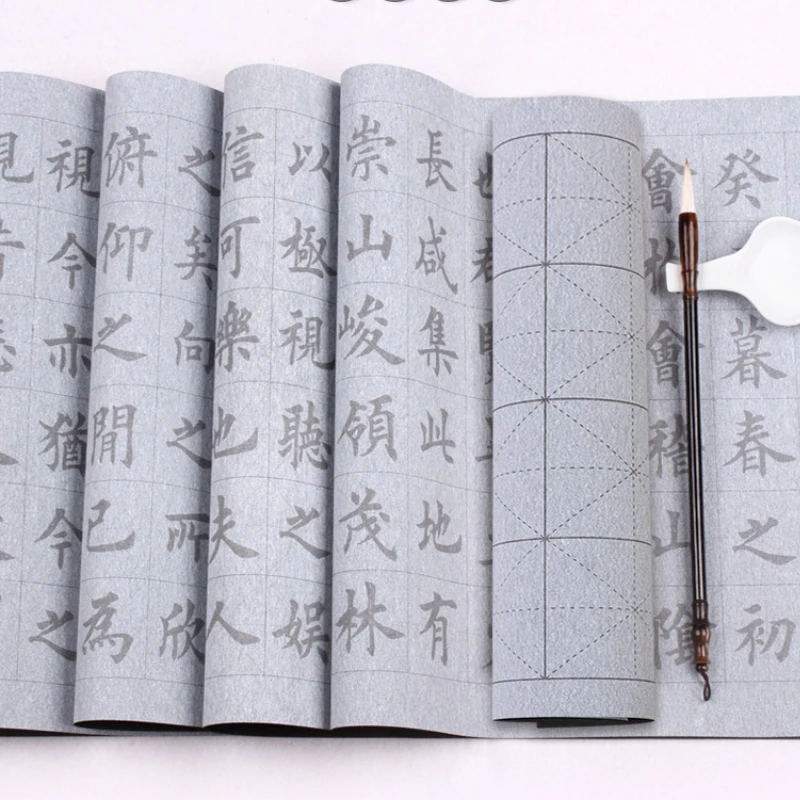 癸暮春之初
會會稽山陰
長咸集此地有
崇山峻領茂林
以極視聽之娛
信可樂也夫人
之矣向之所欣
俯仰之閒已為
視今亦猶今之